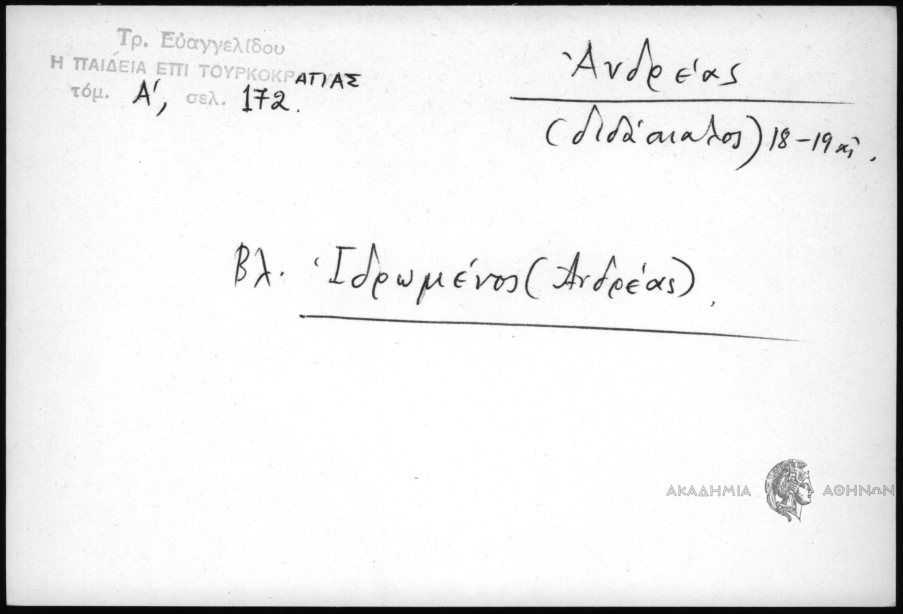 Τρ. Εὐαγγελίδου
Η ΠΑΙΔΕΙΑ ΕΠΙ ΤΟΥΡΚΟΚΡΑΤΙΑΣ
τόμ. Α', σελ. 172.
Ἀνδρέας
(διδάσκαλος) 18-19 αἰ.
Βλ. Ἱδρωμένος (Ἀνδρέας).
ΑΚΑΔΗΜΙΑ ΑΘΗΝΩΝ